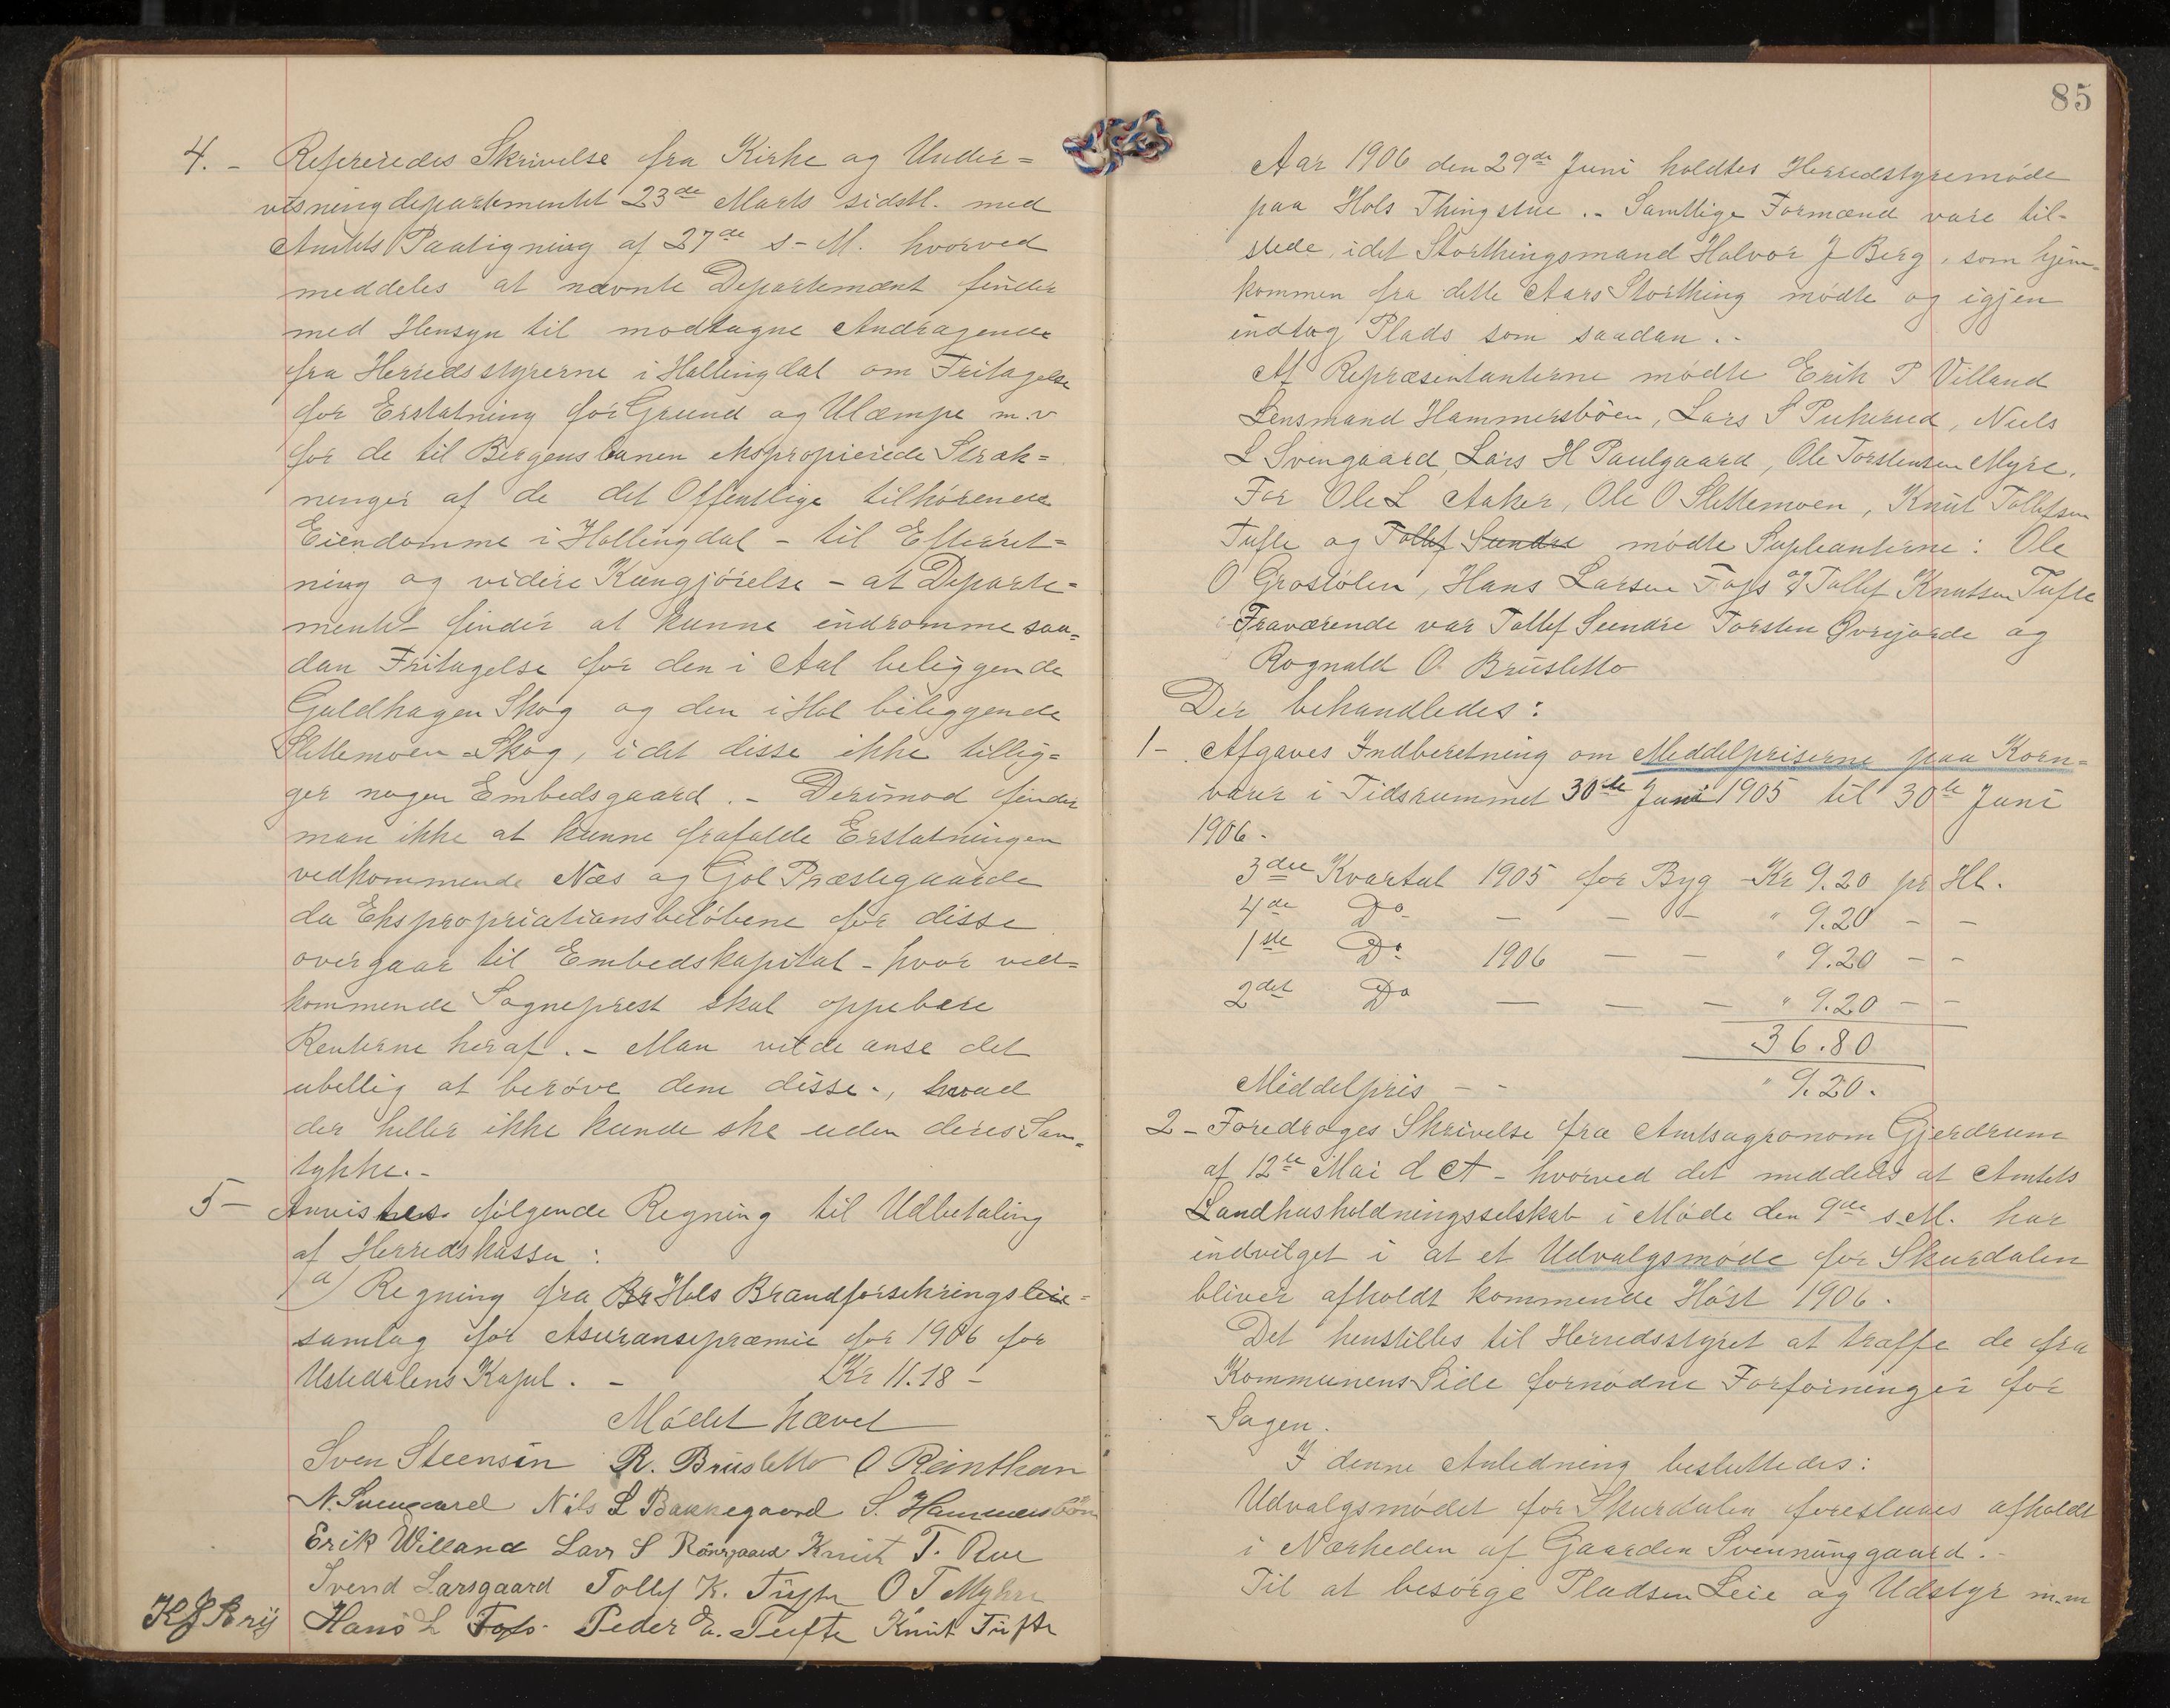 4. - Refereredes Skrivelse fra Kirke og Under=
visningdepartementet 23de Marts sidstl. med
Amtets Paategning af 27de s-M. hvorved
meddeles at nævnte Departement finder
med Hensyn til modtagne Andragender
fra Herredsstyrerne i Hallingdal om Fritagelse
for Erstatning for Grund og Ulæmpe m.v
for de til Bergensbanen ekspropierede Stræk=
ninger af de det Offentlige tilhørende
Eiendomme i Hallingdal - til Efterret=
ning og videre Kungjørelse - at Departe=
mentet finder at kunne indrømme saa=
dan Fritagelse for den i Aal beliggende
Guldhagen Skog og den i Hol beliggende
Slettemoen Skog, idet disse ikke tillig=
ger nogen Embedsgaard. - Derimod finder
man ikke at kunne frafalde Erstatningen
vedkommende Næs og Gol Præstegaarde
da Ekspropriationsbeløbene for disse
overgaar til Embedskapital - hvor ved=
kommende Sogneprest skal oppebære
Renterne heraf. - Man vilde anse det
ubillig at berøve dem disse -, hvad
der heller ikke kunde ske uden deres Sam=
tykke. -
5 - Anvistes følgende Regning til Udbetaling
af Herredskassen :
a) Regning fra Br Hols Brandforsekringsleie=
samlag for Asuransepræmie for 1906 for
Ustedalens Kapel. - Kr 11.18 -
Mødet hævet
Sven Steensen R. Brusletto O Reinthon
N. Svengaard Nils L Bakkegaard S. Hammersbøen
Erik Willand Lars S Knut T. Rue
Svend Larsgaard Tollef K. Tufte O T Myhre
Hans L Foss Peder E. Tufte Knut Tufte
85
Aar 1906 den 29de Juni holdtes Herredstyremøde
paa Hols Thingstue. - Samtlige Formænd vare til-
stede, idet Storthingsmand Halvor J Berg, som hjem-
kommen fra dette Aars Storthing mødte og igjen
indtog Plads som saadan. -
Af Repræsentanterne mødte Erik P Villand
Lensmand Hammersbøen, Lars S Pukerud, Niels
L Svengaard, Lars H Paulgaard, Ole Torstensen Myre.
For Ole L Aaker, Ole O Slettemoen, Knut Tollefsen
Tufte og Tollef Sundre mødte Supleanterne: Ole
O Grostølen, Hans Larsen Foss & Tollef Knutsen Tufte
Fraværende var Tollef Sundre Torsten Øvrejorde og
Rognald O. Brusletto
Der behandledes :
1 - Afgaves Indberetning om Meddelpriserne paa Korn=
varer i Tidsrummet 30te Juni 1905 til 30te Juni
1906 -
3die Kvartal 1905 for Byg Kr 9.20 pr Hl.
4de Do - - - " 9.20 - -
1ste Do 1906 - - " 9.20 - -
2det Do - - - " 9.20 - -
36.80
Middelpris - - " 9.20.
2 - Foredroges Skrivelse fra Amtsagronom Gjerdrum
af 12te Mai d A - hvorved det meddeles at Amtets
Landhusholdningsselskab i Møde den 9de s.M. har
indvilget i at et Udvalgsmøde for Skurdalen
bliver afholdt kommende Høst 1906.
Det henstilles til Herredsstyret at træffe de fra
Kommunens Side fornødne Forføininger for
Sagen.
I denne Anledning besluttedes:
Udvalgsmødet for Skurdalen foreslaaes afholdt
i Nærheden af Gaarden Svennunggaard. -
Til at besørge Pladsen Leie og Udstyr m.m